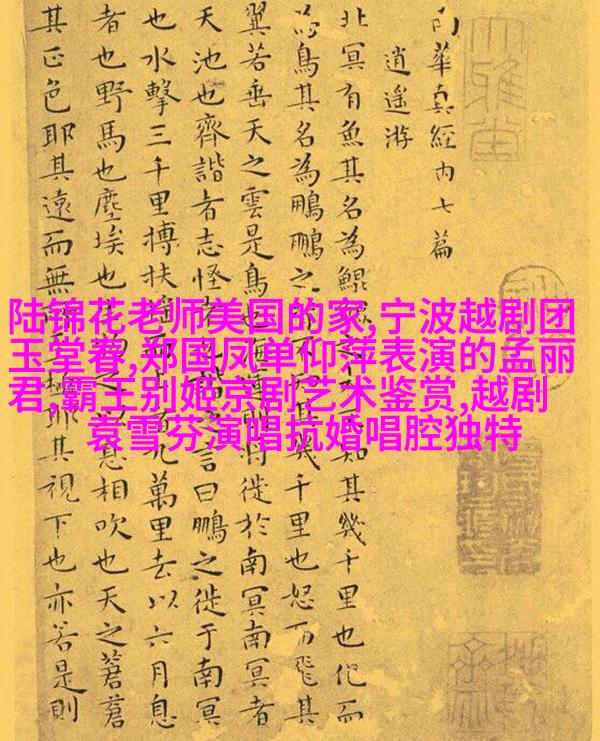 南華真經内七篇
逍遥游
北冥有魚其名為鯤知其幾千里也化而
為鳥其名為鵬鵬之幾千里也怒而飛其
翼若垂天之雲是鳥也將徙於南冥南冥者
天池也齊諧者志怪者之言曰鵬之徙于南冥
也水擊三千里搏扶九萬里去以六月息
者也野馬也塵埃也息相吹也天之蒼蒼
其正色耶其遠而無耶其視下也亦若是則
陆锦花老师美国的家,宁波越剧团
玉堂春,郑国凤单仰萍表演的孟丽
君,霸王别姬京剧艺术鉴赏,越剧
袁雪芬演唱抗婚唱腔独特